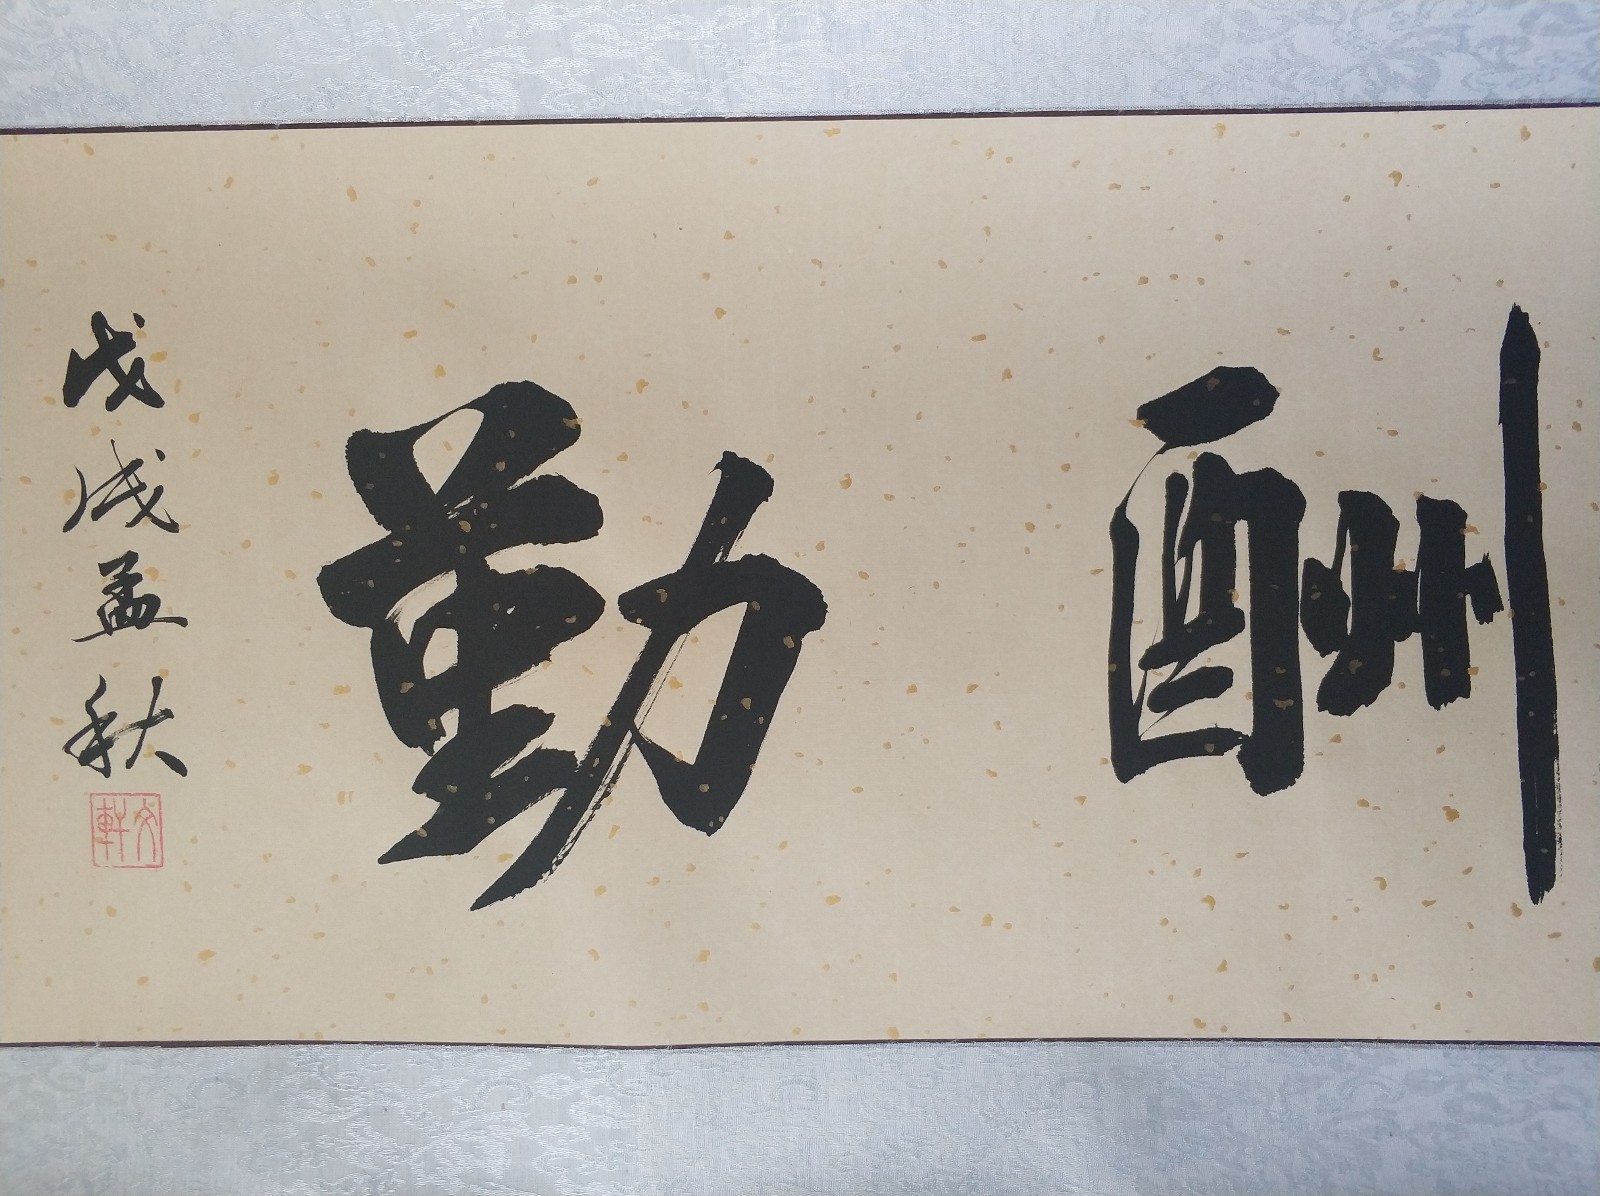 酬勤
戊戌孟秋
文軒